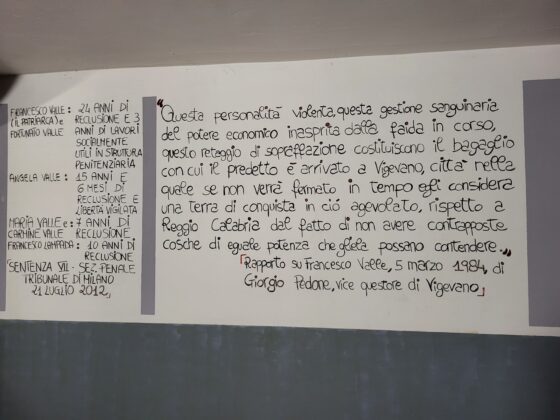 FRANCESCO VALLE: 24 ANNI DI
(IL PATRIARCA) e RECLUSIONE E 3
FORTUNATO VALLE ANNI DI LAVORI
SOCIALMENTE
UTILI IN STRUTTURA
PENITENZIARIA
ANGELA VALLE: 15 ANNI E
6 MESI DI
RECLUSIONE E
LIBERTÀ VIGILATA
MARIA VALLE e: 7 ANNI DI
CARMINE VALLE RECLUSIONE
FRANCESCO LAMPADA: 10 ANNI DI
RECLUSIONE
"SENTENZA VII - SEZ. PENALE
TRIBUNALE DI MILANO
21 LUGLIO 2012"
"Questa personalità violenta, questa gestione sanguinaria
del potere economico inasprita dalla faida in corso,
questo retaggio di sopraffazione costituiscono il bagaglio
con cui il predetto è arrivato a Vigevano, città nella
quale se non verrà fermato in tempo egli considera
una terra di conquista in ciò agevolato, rispetto a
Reggio Calabria dal fatto di non avere contrapposte
cosche di eguale potenza che gliela possano contendere..."
"Rapporto su Francesco Valle, 5 marzo 1984, di
Giorgio Pedone, vice questore di Vigevano"